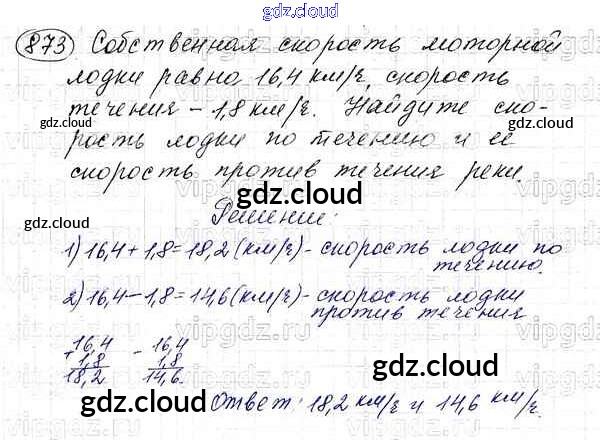 gdz.cloud
873 Собственная скорость моторной
gdz.cloud gdz.cloud
лодки равна 16,4 км/ч, скорость
течения – 1,8 км/ч. Найдите ско-
gdz.cloud
рость лодки по течению и её
скорость против течения реки.
gdz.cloud
gdz.cloud gdz.cloud
Решение:
1) 16,4 + 1,8 = 18,2 (км/ч) - скорость лодки по
течению.
gdz.cloud
2) 16,4 – 1,8 = 14,6 (км/ч) - скорость лодки
против течения
vipgdz.ru
+ 16,4 - 16,4
1,8 1,8
18,2 14,6.
gdz.cloud gdz.cloud
Ответ: 18,2 км/ч и 14,6 км/ч.
gdz.cloud